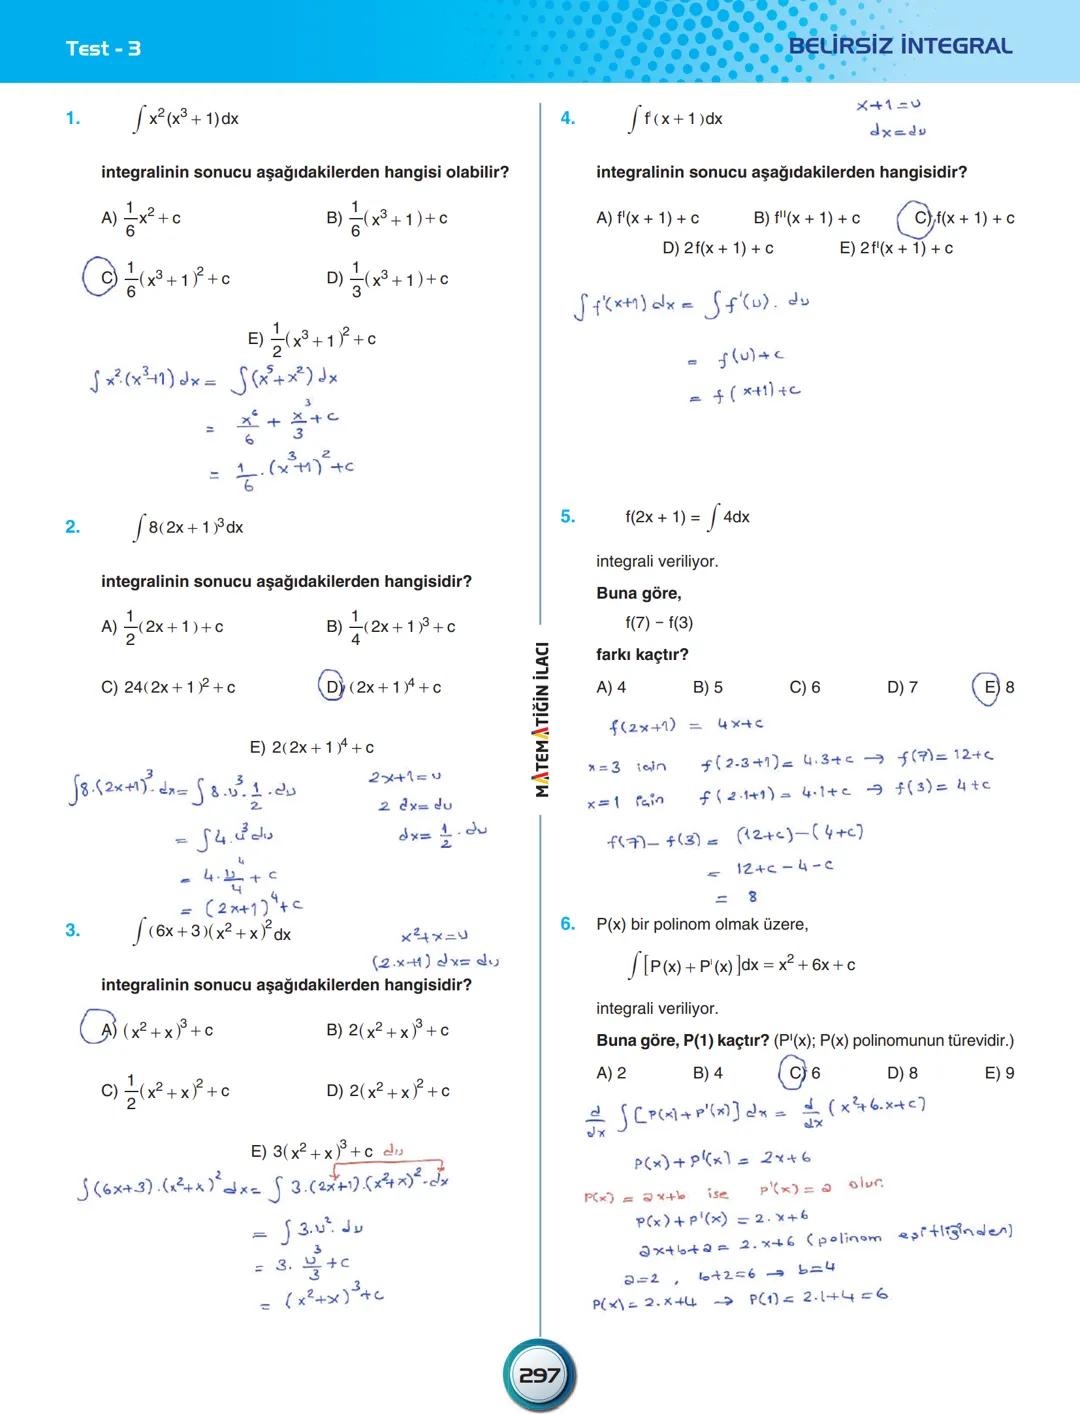 Test - 3
BELİRSİZ İNTEGRAL
1. ∫ x²(x³ + 1)dx
integralinin sonucu aşağıdakilerden hangisi olabilir?
A) 1/6 x² + c B) 1/6 (x³ + 1) + c
C) 1/6 (x³ + 1)² + c D) 1/3 (x³ + 1) + c
E) 1/2 (x³ + 1)² + c
∫ x².(x³+1) dx = ∫(x⁵+x²) dx
= x⁶/6 + x³/3 + c
= 1/6 . (x³+1)² + c
2. ∫ 8(2x + 1)³dx
integralinin sonucu aşağıdakilerden hangisidir?
A) 1/2 (2x + 1) + c B) 1/4 (2x + 1)³ + c
C) 24(2x + 1)² + c D) (2x + 1)⁴ + c
E) 2(2x + 1)⁴ + c
∫8.(2x+1)³.dx = ∫ 8.u³.1/2.du
2x+1=u
2 dx=du
dx= 1/2 . du
= ∫4.u³ du
= 4.u⁴/4 + c
= (2x+1)⁴+c
3. ∫ (6x + 3)(x² + x)²dx
x²+x=u
(2.x+1) dx= du
integralinin sonucu aşağıdakilerden hangisidir?
A) (x² + x)³ + c B) 2(x² + x)³ + c
C) 1/2 (x² + x)² + c D) 2(x² + x)² + c
E) 3(x² + x)³ + c
du
∫(6x+3).(x²+x)² dx= ∫ 3.(2x+1).(x²+x)².dx
= ∫ 3.u². du
= 3. u³/3 + c
= (x²+x)³+c
MATEMATİĞİN İLACI
4. ∫ f(x + 1)dx
x+1=u
dx=du
integralinin sonucu aşağıdakilerden hangisidir?
A) f'(x + 1) + c B) f''(x + 1) + c C) f(x + 1) + c
D) 2f(x + 1) + c E) 2f'(x + 1) + c
∫ f'(x+1) dx = ∫ f'(u). du
= f(u)+c
= f(x+1)+c
5. f(2x + 1) = ∫ 4dx
integrali veriliyor.
Buna göre,
f(7) – f(3)
farkı kaçtır?
A) 4 B) 5 C) 6 D) 7 E) 8
f(2x+1) = 4x+c
x=3 için f(2.3+1)= 4.3+c → f(7)= 12+c
x=1 için f(2.1+1)= 4.1+c → f(3)= 4+c
f(7)– f(3) = (12+c)–(4+c)
= 12+c–4–c
= 8
6. P(x) bir polinom olmak üzere,
∫ [P(x) + P'(x)]dx = x² + 6x + c
integrali veriliyor.
Buna göre, P(1) kaçtır? (P'(x); P(x) polinomunun türevidir.)
A) 2 B) 4 C) 6 D) 8 E) 9
d/dx ∫ [P(x)+P'(x)] dx = d/dx (x²+6.x+c)
P(x)+P'(x) = 2x+6
P(x) = ax+b ise P'(x)=a olur.
P(x)+P'(x) = 2.x+6
ax+b+a = 2.x+6 (polinom eşitliğinden)
a=2 , b+2=6 → b=4
P(x)=2.x+4 → P(1)= 2.1+4=6
297